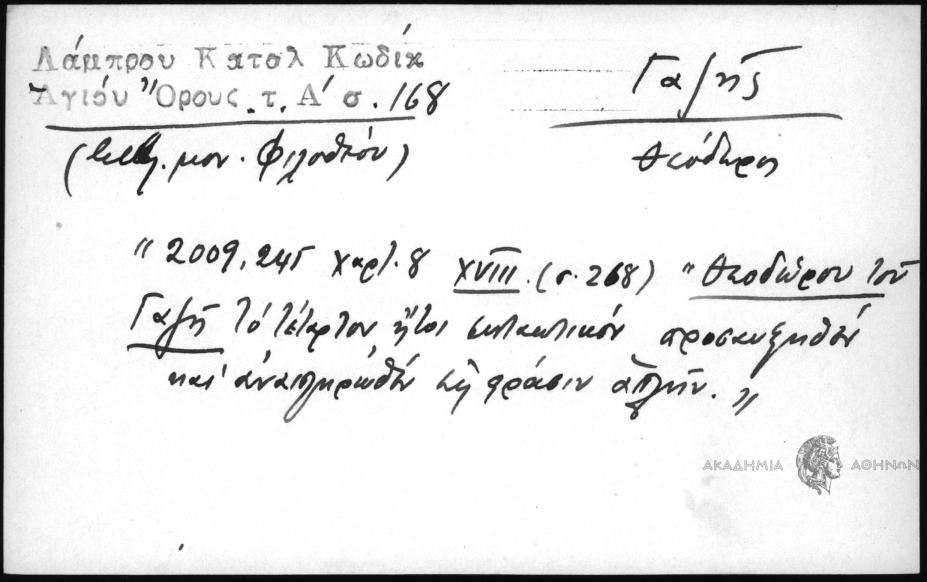 Λάμπρου Καταλ Κωδίκ
Ἁγίου Ὄρους τ. Α' σ. 168
(Βιβλ. μον. Φιλοθέου)
Γαζῆς
Θεόδωρος
" 2009, 245 χαρτ. 8 XVIII. (σ. 268) " Θεοδώρου τοῦ
Γαζῆ τό τέταρτον ἤτοι συντακτικόν προσαυξηθέν
καί ἀναπληρωθέν εἰς φράσιν ἁπλῆν. "
ΑΚΑΔΗΜΙΑ ΑΘΗΝΩΝ